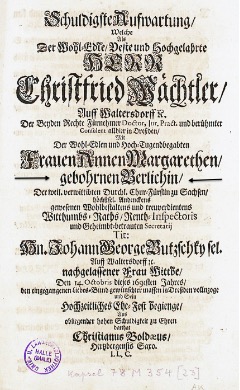 Schuldigste Aufwartung/
Welche
Als
Der Wohl-Edle/ Veste und Hochgelahrte
HERR
Christfried Wächtler/
Auff Waltersdorff ꝛc.
Der Beyden Rechte Fürnehmer Doctor, Jur. Pract. und berühmter
Consulent allhier in Dreßden/
Mit
Der Wohl-Edlen und Hoch-Tugendbegabten
Frauen Annen Margarethen/
gebohrnen Berlichin/
Der weil. verwittibten Durchl. Chur-Fürstin zu Sachsen/
höchstsel. Andenckens
gewesenen Wohlbestalten und treuverdienten
Witthumbs- Raths/ Renth- Inspectoris
und Geheimbt-betrauten Secretarij
Tit:
Hn. Johann George Butzschky sel.
Auff Waltersdorff ꝛc.
nachgelassener Frau Wittbe/
Den 14. Octobris dieses 1691sten Jahres/
den eingegangenen Liebes-Bund gewünschter massen in Dreßden vollzoge
und Sein
Hochzeitliches Ehe-Fest begienge/
Aus
obliegender hohen Schuldigkeit zu Ehren
darthat
Christianus
Hertzbergensis Saxo.
HALLE
(SAALE)
Kapsel 78 M 354 [23]